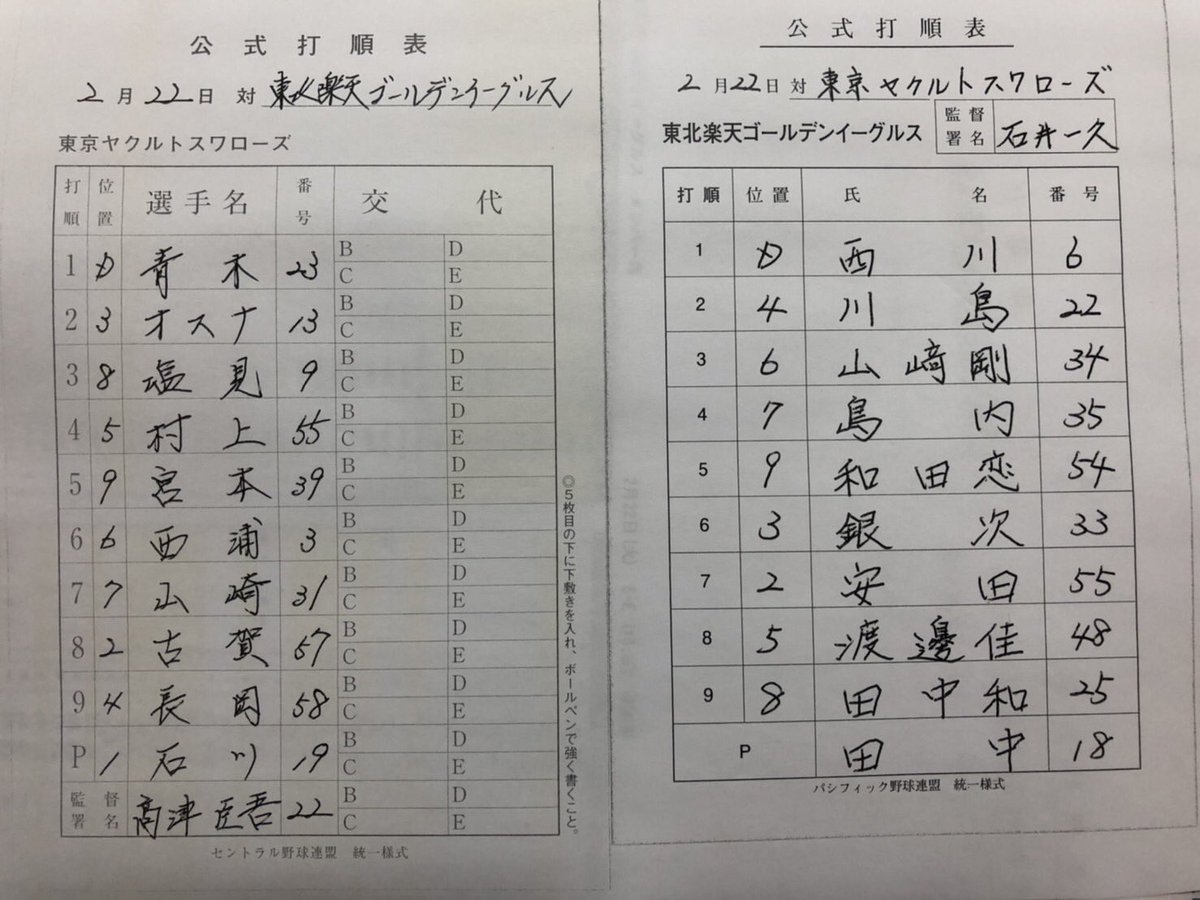 公式打順表
2月22日 対 東北楽天ゴールデンイーグルス
東京ヤクルトスワローズ
打順 位置 選手名 番号 交代
1 D 青木 23 B D C E
2 3 オスナ 13 B D C E
3 8 塩見 9 B D C E
4 5 村上 55 B D C E
5 9 宮本 39 B D C E
6 6 西浦 3 B D C E
7 7 山崎 31 B D C E
8 2 古賀 57 B D C E
9 4 長岡 58 B D C E
P 1 石川 19 B D C E
監督署名 高津臣吾 22 B D C E
セントラル野球連盟 統一様式
◎5枚目の下に下敷きを入れ、ボールペンで強く書くこと。
公式打順表
2月22日 対 東京ヤクルトスワローズ
東北楽天ゴールデンイーグルス 監督署名 石井一久
打順 位置 氏名 番号
1 D 西川 6
2 4 川島 22
3 6 山﨑剛 34
4 7 島内 35
5 9 和田恋 54
6 3 銀次 33
7 2 安田 55
8 5 渡邊佳 48
9 8 田中和 25
P 田中 18
パシフィック野球連盟 統一様式